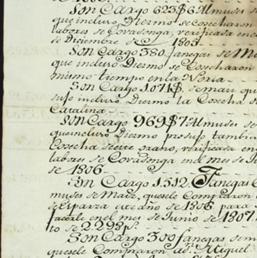 Son Cargo 623$6 Almudes
que incluso Diezmo se cosecharon
labores de Covadonga, verificada en
de Diciembre de 1805.
Son Cargo 380. fanegas de Ma
que incluso Diezmo se Cosecharon
mismo tiempo en la Noria.
Son Cargo 1071$. de maiz que
incluso Diezmo la Cosecha de
Catalina
Son Cargo 969$7. Almudes de
que incluso Diezmo produjo tambien
Cosecha de este grano, verificada en
labores de Covadonga en el mes de
de 1806
Son Cargo 1512 Fanegas
mudes de Maiz, que se le Compraron
de Esparza a de 1806 para
en el mes de Junio de 1807
to de 2298p.
Son Cargo 300 fanegas de m
que se le Compraron a Dn. Miguel